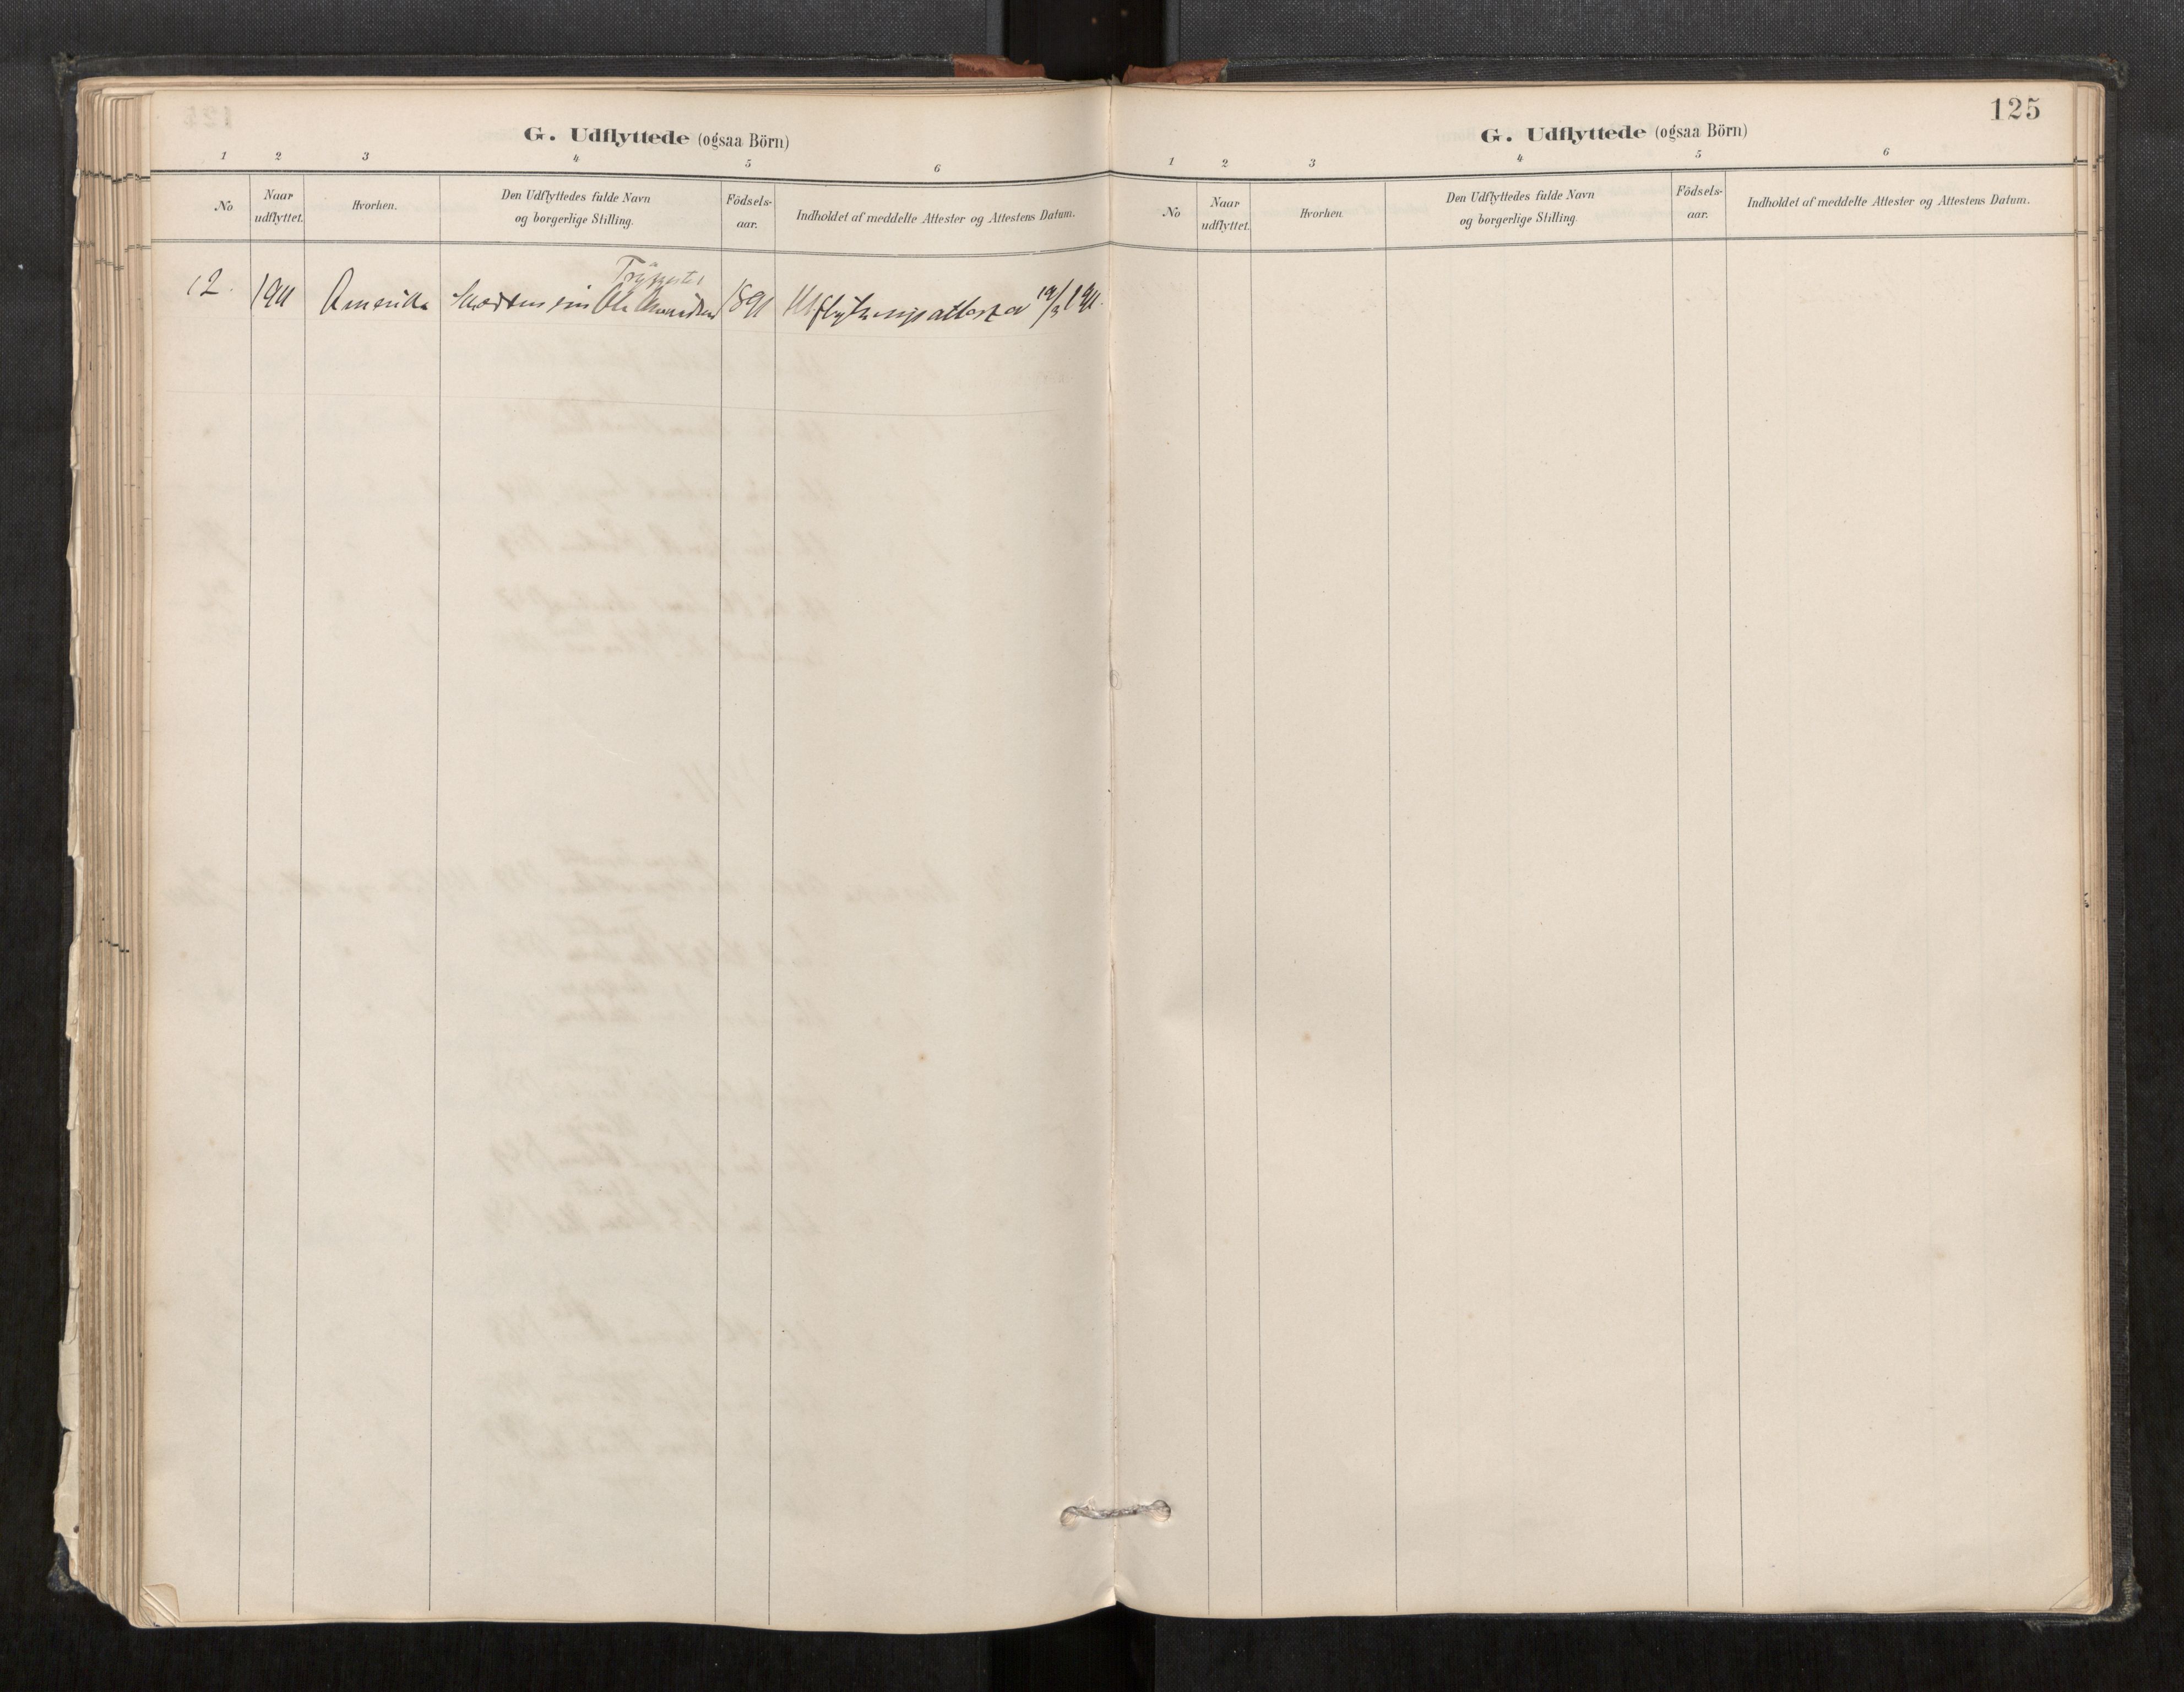 G. Udflyttede (ogsaa Börn)
1 2 3 4 5 6
No
Naar udflyttet.
Hvorhen.
Den Udflyttedes fulde Navn
og borgerlige Stilling.
Födsels-
aar.
Indholdet af meddelte Attester og Attestens Datum.
12. 1911 Amerika Ole Amundsen 1891 Utflytningsattest av 19/3 1911.
125
G. Udflyttede (ogsaa Börn)
1 2 3 4 5 6
No
Naar
udflyttet.
Hvorhen.
Den Udflyttedes fulde Navn
og borgerlige Stilling.
Födsels-
aar.
Indholdet af meddelte Attester og Attestens Datum.